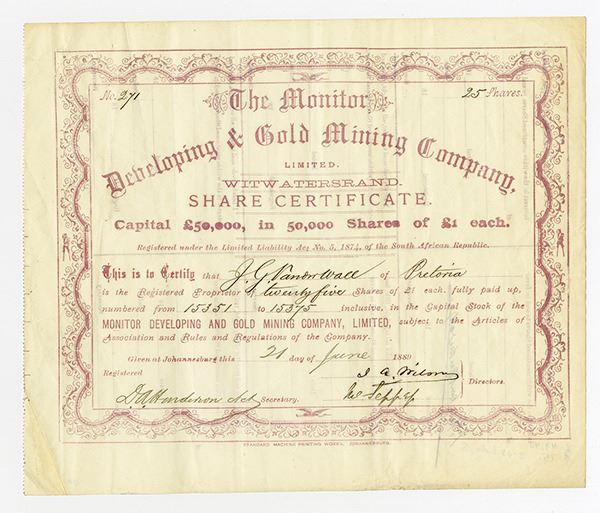 No. 271 25 Shares.
The Monitor
Developing & Gold Mining Company,
LIMITED.
WITWATERSRAND.
SHARE CERTIFICATE.
Capital £50,000, in 50,000 Shares of £1 each.
Registered under the Limited Liability Act No. 5, 1874, of the South African Republic.
This is to Certify that J. G. Vander Wall of Pretoria
is the Registered Proprietor of twenty five Shares of £1 each, fully paid up,
numbered from 15351 to 15375 inclusive, in the Capital Stock of the
MONITOR DEVELOPING AND GOLD MINING COMPANY, LIMITED, subject to the Articles of
Association and Rules and Regulations of the Company.
Given at Johannesburg this 21 day of June 1889
Registered
Directors.
D. A. Henderson Act Secretary.
STANDARD MACHINE PRINTING WORKS, JOHANNESBURG.